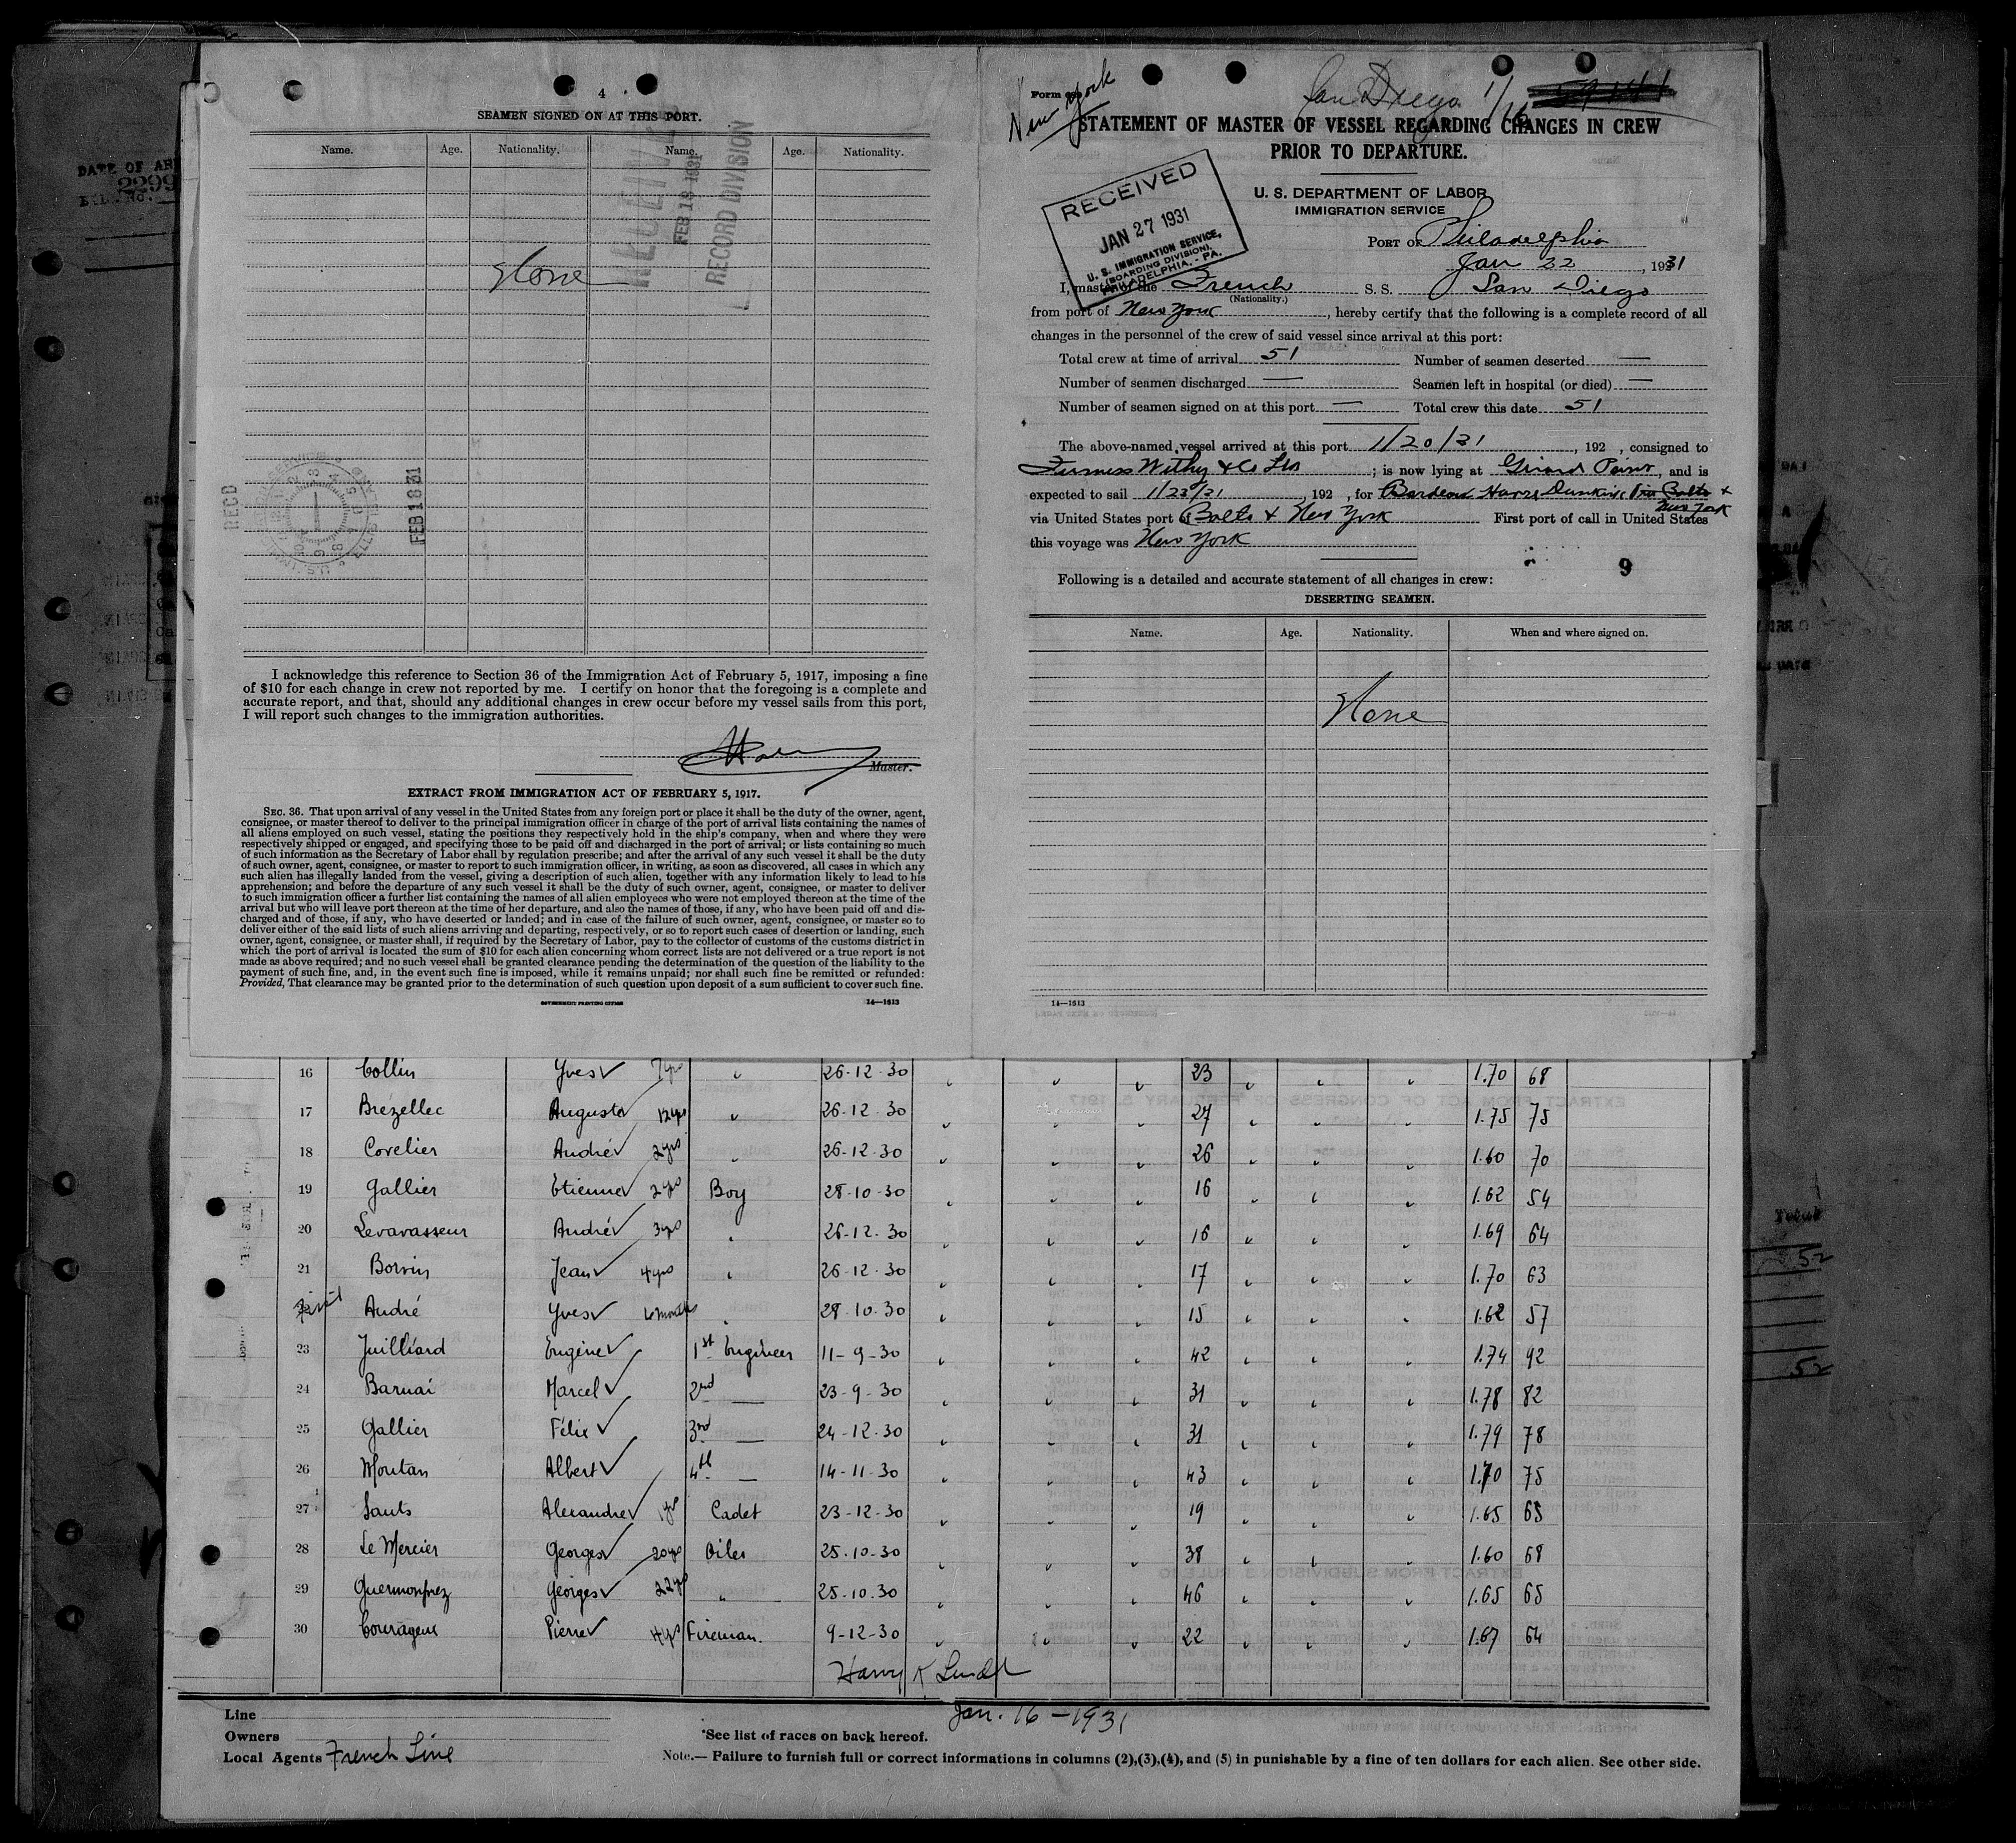 4
SEAMEN SIGNED ON AT THIS PORT.
Name. Age. Nationality. Name. Age. Nationality.
FEB 18 1931
RECORD DIVISION
None
REC'D
FEB 18 31
I acknowledge this reference to Section 36 of the Immigration Act of February 5, 1917, imposing a fine
of $10 for each change in crew not reported by me. I certify on honor that the foregoing is a complete and
accurate report, and that, should any additional changes in crew occur before my vessel sails from this port,
I will report such changes to the immigration authorities.
Master.
EXTRACT FROM IMMIGRATION ACT OF FEBRUARY 5, 1917.
SEC. 36. That upon arrival of any vessel in the United States from any foreign port or place it shall be the duty of the owner, agent,
consignee, or master thereof to deliver to the principal immigration officer in charge of the port of arrival lists containing the names of
all aliens employed on such vessel, stating the positions they respectively hold in the ship's company, when and where they were
respectively shipped or engaged, and specifying those to be paid off and discharged in the port of arrival; or lists containing so much
of such information as the Secretary of Labor shall by regulation prescribe; and after the arrival of any such vessel it shall be the duty
of such owner, agent, consignee, or master to report to such immigration officer, in writing, as soon as discovered, all cases in which any
such alien has illegally landed from the vessel, giving a description of such alien, together with any information likely to lead to his
apprehension; and before the departure of any such vessel it shall be the duty of such owner, agent, consignee, or master to deliver
to such immigration officer a further list containing the names of all alien employees who were not employed thereon at the time of the
arrival but who will leave port thereon at the time of her departure, and also the names of those, if any, who have been paid off and dis-
charged and of those, if any, who have deserted or landed; and in case of the failure of such owner, agent, consignee, or master so to
deliver either of the said lists of such aliens arriving and departing, respectively, or so to report such cases of desertion or landing, such
owner, agent, consignee, or master shall, if required by the Secretary of Labor, pay to the collector of customs of the customs district in
which the port of arrival is located the sum of $10 for each alien concerning whom correct lists are not delivered or a true report is not
made as above required; and no such vessel shall be granted clearance pending the determination of the question of the liability to the
payment of such fine, and, in the event such fine is imposed, while it remains unpaid; nor shall such fine be remitted or refunded:
Provided, That clearance may be granted prior to the determination of such question upon deposit of a sum sufficient to cover such fine.
GOVERNMENT PRINTING OFFICE 14—1613
New York
Form
San Diego 1/16
STATEMENT OF MASTER OF VESSEL REGARDING CHANGES IN CREW
PRIOR TO DEPARTURE.
U. S. DEPARTMENT OF LABOR
IMMIGRATION SERVICE
RECEIVED
JAN 27 1931
U. S. IMMIGRATION SERVICE,
(BOARDING DIVISION),
PHILADELPHIA, - PA.
PORT OF Philadelphia
Jan 22, 1931
I, master of the French S. S. San Diego
(Nationality.)
from port of New York, hereby certify that the following is a complete record of all
changes in the personnel of the crew of said vessel since arrival at this port:
Total crew at time of arrival 51 Number of seamen deserted —
Number of seamen discharged — Seamen left in hospital (or died) —
Number of seamen signed on at this port — Total crew this date 51
The above-named vessel arrived at this port 1/20/31, 192 , consigned to
Furness Withy & Co Ltd; is now lying at Girard Point, and is
expected to sail 1/23/31, 192 , for Bordeau Havre Dunkirk via Balto +
New York
via United States port of Balto + New York First port of call in United States
this voyage was New York
9
Following is a detailed and accurate statement of all changes in crew:
DESERTING SEAMEN.
Name. Age. Nationality. When and where signed on.
None
14—1613
16 Collin Yves 7yrs " 26-12-30 " " " 23 " " " 1.70 68
17 Brézellec Auguste 12yrs " 26-12-30 " " " 27 " " " 1.75 75
18 Corelier André 2yrs " 26-12-30 " " " 26 " " " 1.60 70
19 Gallier Etienne 2yrs Boy 28-10-30 " " " 16 " " " 1.62 54
20 Levavasseur André 3yrs " 26-12-30 " " " 16 " " " 1.69 64
21 Boivin Jean 4yrs " 26-12-30 " " " 17 " " " 1.70 63
first André Yves months " 28-10-30 " " " 15 " " " 1.62 57
23 Juilliard Eugène 1st Engineer 11-9-30 " " " 42 " " " 1.74 92
24 Barnai Marcel 2nd — 23-9-30 " " " 31 " " " 1.78 82
25 Gallier Félix 3rd — 24-12-30 " " " 31 " " " 1.79 78
26 Moutan Albert 4th — 14-11-30 " " " 43 " " " 1.70 75
27 Sauts Alexandre 1yr Cadet 23-12-30 " " " 19 " " " 1.65 65
28 Le Mercier Georges 20yrs Oiler 25-10-30 " " " 38 " " " 1.60 68
29 Guermonprez Georges 22yrs " 25-10-30 " " " 46 " " " 1.65 65
30 Courageux Pierre 4yrs Fireman. 9-12-30 " " " 22 " " " 1.67 64
Harry K
Jan. 16-1931
Line
Owners
Local Agents French Line
*See list of races on back hereof.
Note.— Failure to furnish full or correct informations in columns (2),(3),(4), and (5) in punishable by a fine of ten dollars for each alien. See other side.
DATE OF
2299
Total
52
52